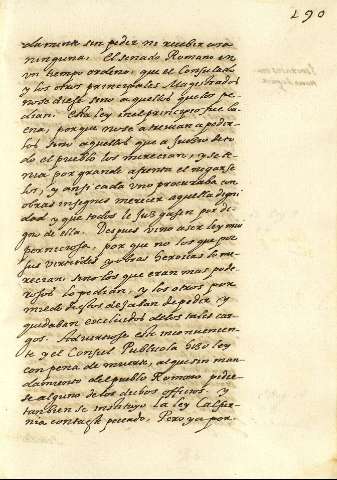 190
olamente sin pedir ni recebir cosa
ninguna. El senado Romano en
un tiempo ordenò, que el Consulado
y los otros principales Magistrados
no se diese sino a aquellos que los pe-
dian. Esta ley en el principio fue bu-
ena, porque no se atrevian a pedir-
los sino aquellos que a juizio de to-
do el pueblo los merecian, y se te-
nia por grande afrenta el negarse
los, y ansi cada uno procuraba con
obras insignes merecer aquella digni
dad y que todos le juzgasen por di-
gno de ella. Despues vino a ser ley muy
perniciosa, por que no los que por
sus virtudes y obras heroicas lo me-
recian, sino los que eran mas pode-
rosos lo pedian, y los otros por
miedo de ellos dejaban de pedir, y
quedaban excluidos de los tales car-
gos. Advirtiose este inconvenien-
te y el Consul Publicola hizo ley
con pena de muerte, al que sin man-
damiento del pueblo Romano pidie-
se alguno de los dichos officios y
tanbien se instituyo la ley Calpur-
nia contra este pecado. Pero ya por-